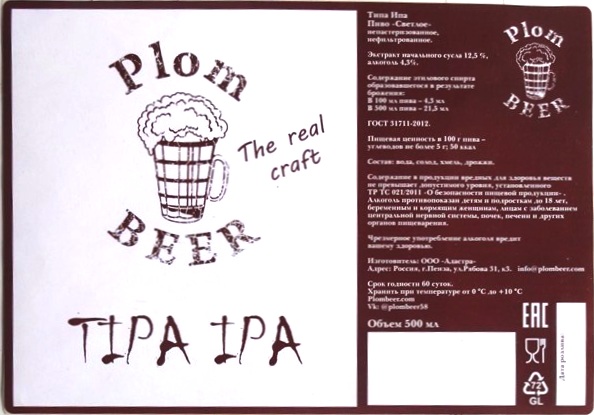 Plom
BEER
The real
craft
TIPA IPA
Типа Ипа
Пиво «Светлое»
непастеризованное,
нефильтрованное.
Экстракт начального сусла 12,5 %,
алкоголь 4,3%.
Содержание этилового спирта
образовавшегося в результате
брожения:
В 100 мл пива – 4,3 мл
В 500 мл пива – 21,5 мл
ГОСТ 31711-2012.
Пищевая ценность в 100 г пива –
углеводов не более 5 г; 50 ккал
Состав: вода, солод, хмель, дрожжи.
Содержание в продукции вредных для здоровья веществ
не превышает допустимого уровня, установленного
ТР ТС 021/2011 «О безопасности пищевой продукции» .
Алкоголь противопоказан детям и подросткам до 18 лет,
беременным и кормящим женщинам, лицам с заболеванием
центральной нервной системы, почек, печени и других
органов пищеварения.
Чрезмерное употребление алкоголя вредит
вашему здоровью.
Изготовитель: ООО «Адастра»
Адрес: Россия, г.Пенза, ул.Рябова 31, к3. info@plombeer.com
Срок годности 60 суток.
Хранить при температуре от 0 °C до +10 °C
Plombeer.com
Vk: @plombeer58
Объем 500 мл
Plom
BEER
EAC
72
GL
Дата розлива: